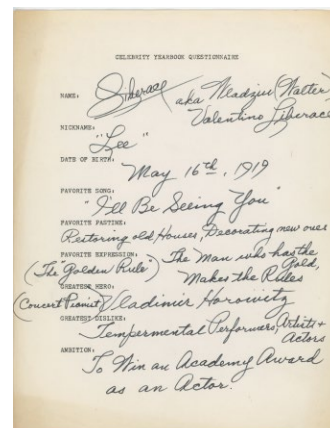 CELEBRITY YEARBOOK QUESTIONNAIRE
NAME: Liberace aka Wladziu (Walter)
Valentino Liberace
NICKNAME:
"Lee"
DATE OF BIRTH:
May 16th, 1919
FAVORITE SONG:
"I'll Be Seeing You"
FAVORITE PASTIME:
Restoring old Houses, Decorating new over
FAVORITE EXPRESSION: The Man who has the
(The "Golden Rule") Gold,
Makes the Rules
GREATEST HERO:
(Concert Pianist) Vladimir Horowitz
GREATEST DISLIKE:
Tempermental Performers, Artists +
Actors
AMBITION:
To Win an Academy Award
as an Actor.